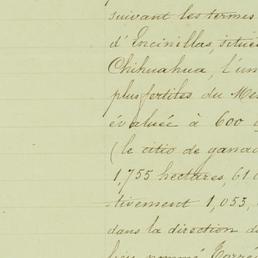 suivant les termes
d'Encinillas, situé
Chihuahua, l'un
plus fertiles du Me
évaluée à 600
(le citio de gana
1,755 hectares, 61
tivement 1,053,
dans la direction d
lieu nommé Torré